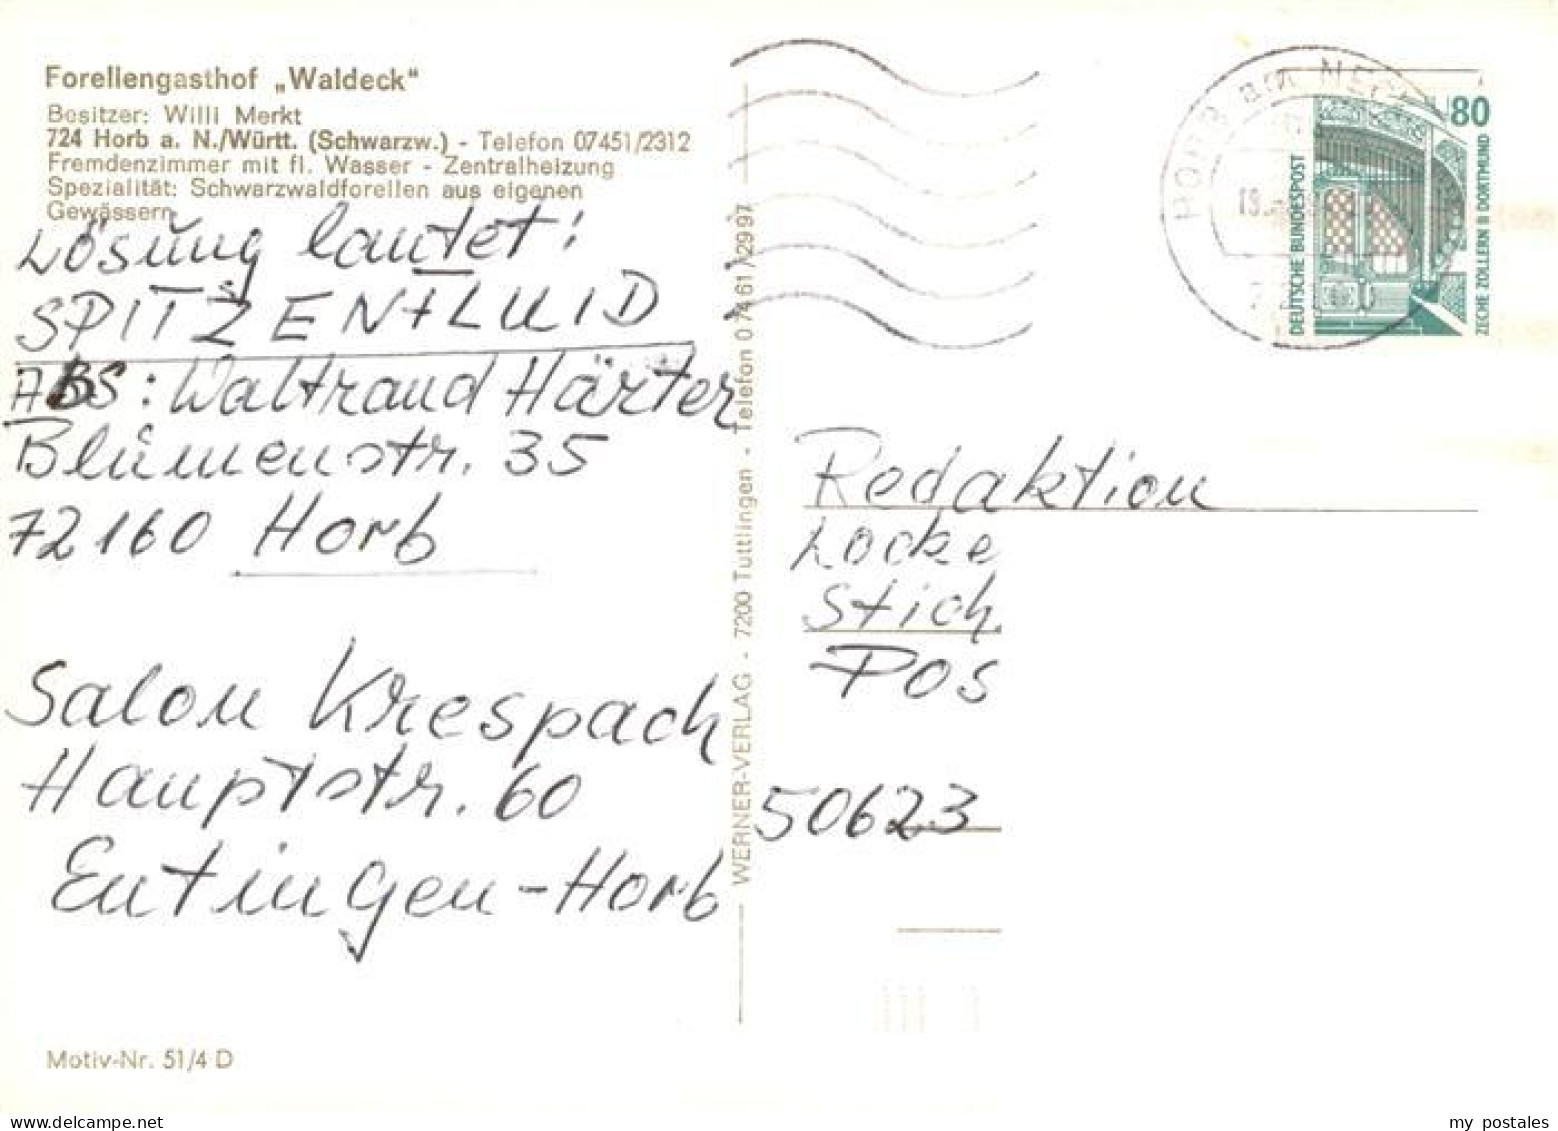 Forellengasthof „Waldeck“
Besitzer: Willi Merkt
724 Horb a. N./Württ. (Schwarzw.) - Telefon 07451/2312
Fremdenzimmer mit fl. Wasser - Zentralheizung
Spezialität: Schwarzwaldforellen aus eigenen
Gewässern
Lösung lautet:
SPITZENFLUID
ABS: Waltraud Härter
Blumenstr. 35
72160 Horb
Salon Krespach
Hauptstr. 60
Eutingen-Horb
Motiv-Nr. 51/4 D
WERNER-VERLAG - 7200 Tuttlingen - Telefon 07461/2997
HORB am NECK
DEUTSCHE BUNDESPOST
80
ZECHE ZOLLERN II DORTMUND
Redaktion
Locke
Stich
Pos
50623
my postales